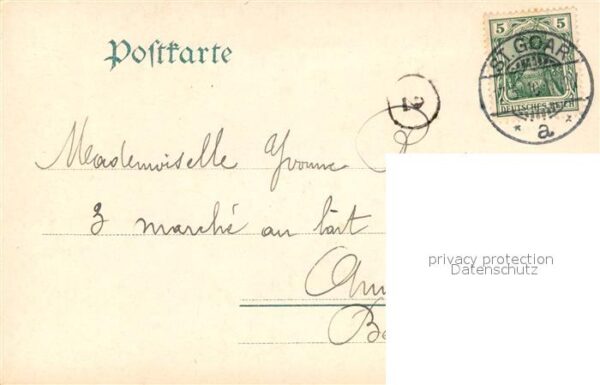 Postkarte
5 5
ST. GOAR
DEUTSCHES REICH
* a *
2
Mademoiselle Yvonne
3 marché au lait
privacy protection
Datenschutz